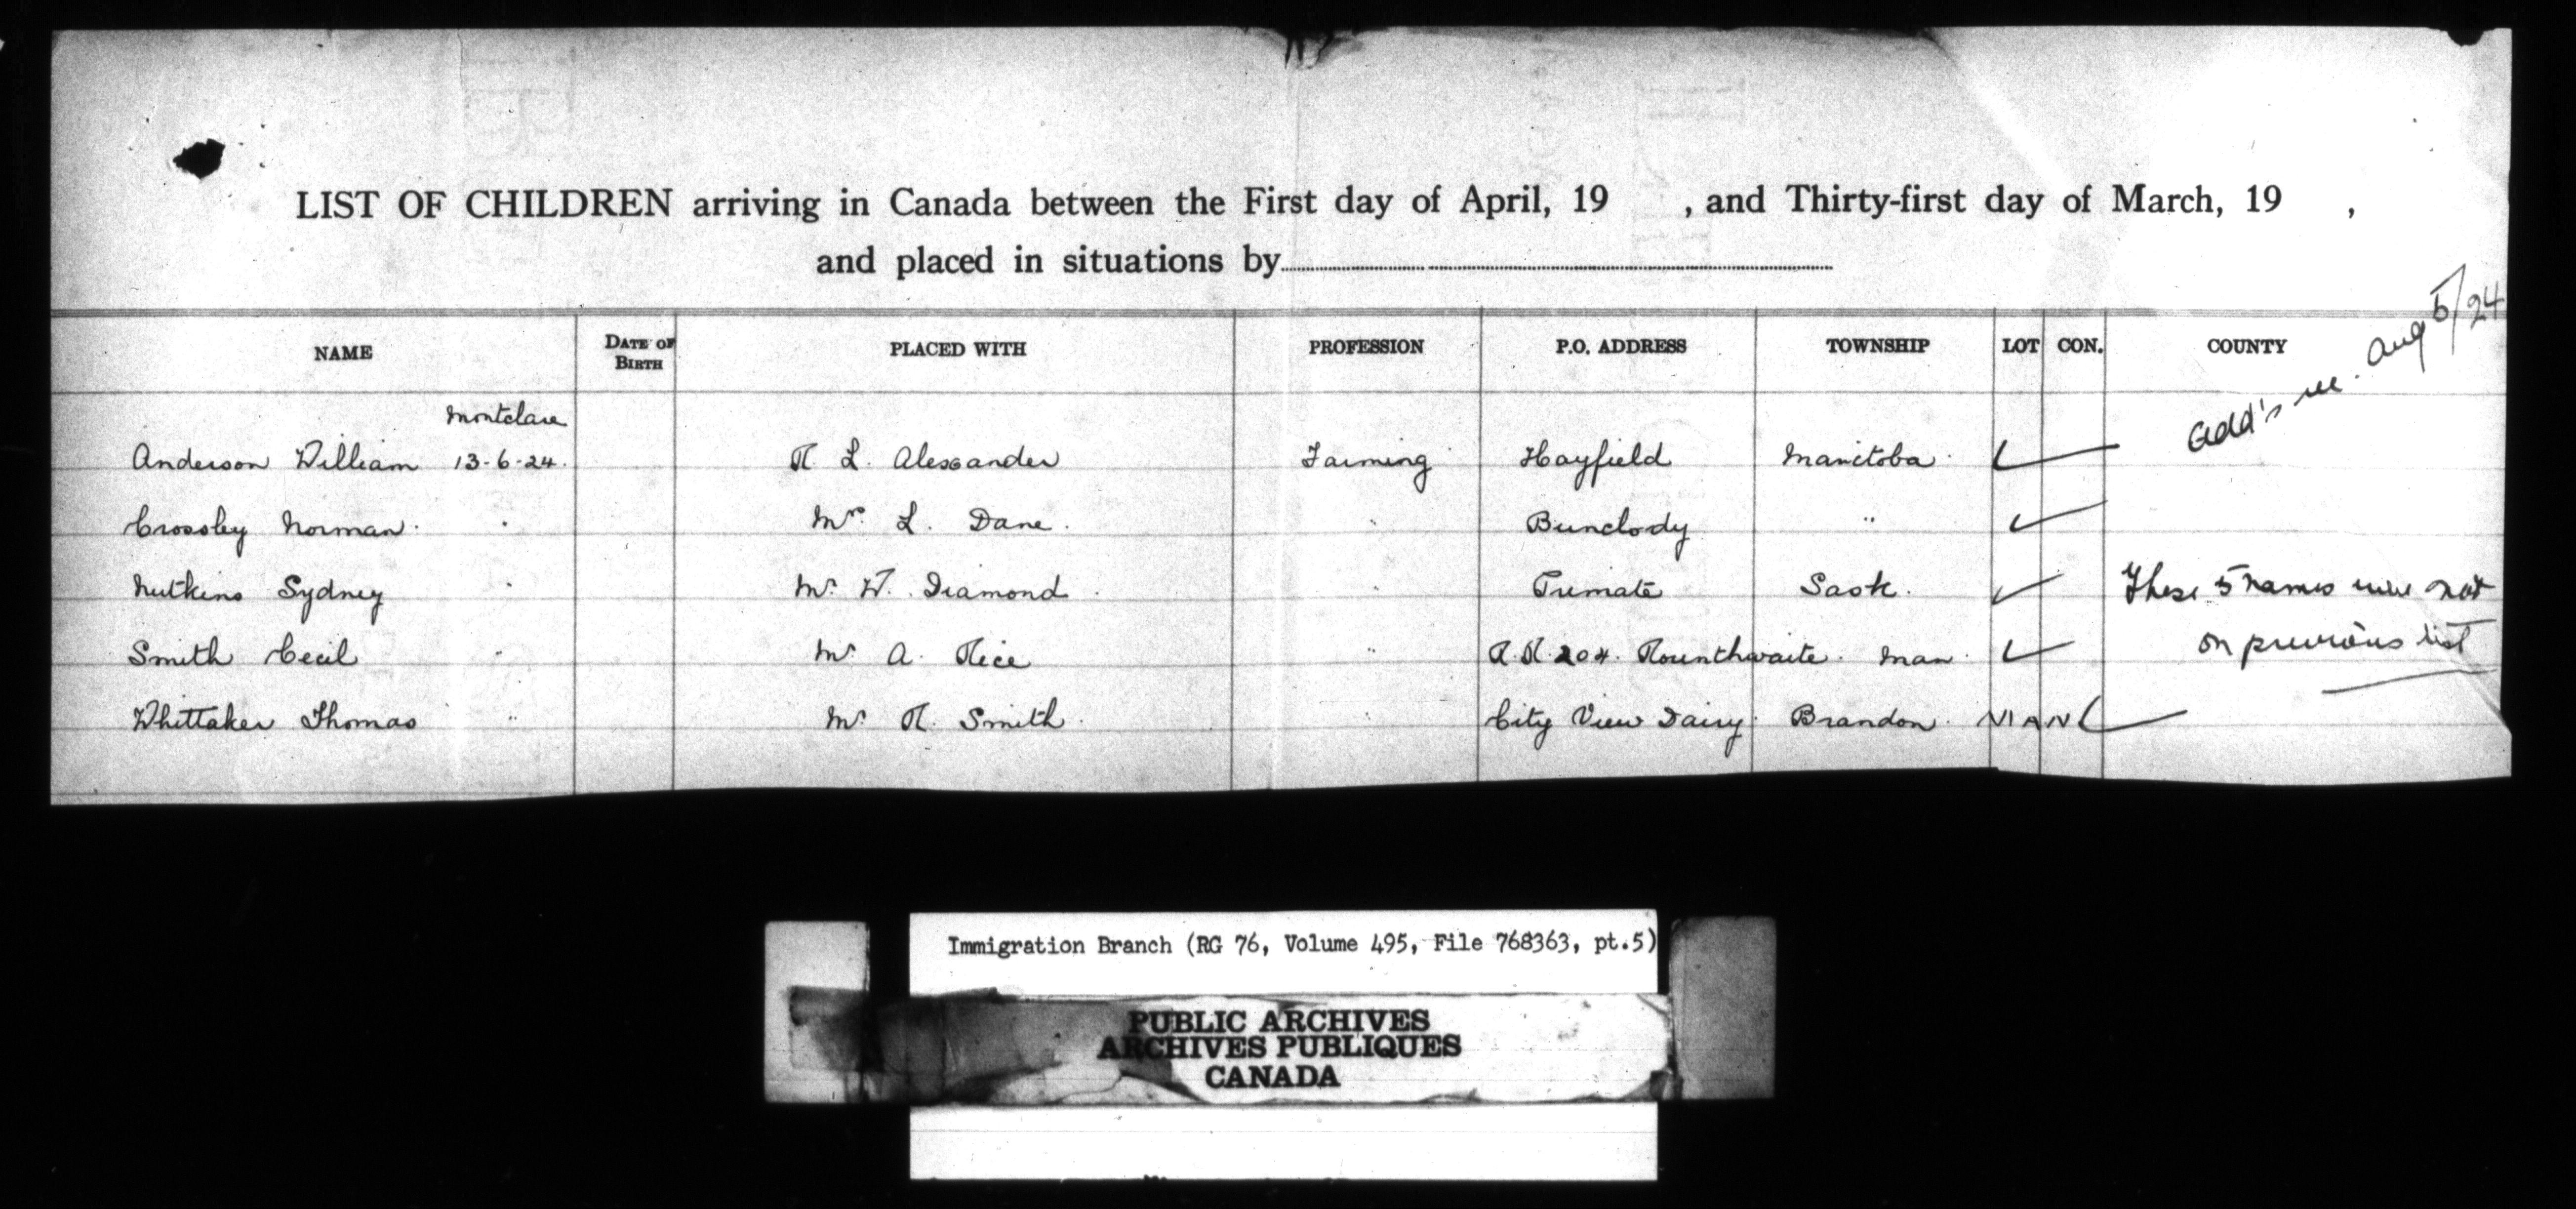 LIST OF CHILDREN arriving in Canada between the First day of April, 19 , and Thirty-first day of March, 19 ,
and placed in situations by
NAME DATE OF BIRTH PLACED WITH PROFESSION P.O. ADDRESS TOWNSHIP LOT CON. COUNTY
Add's Aug 5/24
Montclare
Anderson William 13-6-24. R. L. Alexander Farming Hayfield Manitoba
Crossley Norman. " Mrs L. Dane. " Bunclody "
Nutkins Sydney " Mr. W. Diamond. " Primate Sask.
These 5 names were not
Smith Cecil " Mr. A. Rice " R.R. 204. Rounthwaite. Man.
on previous list
Whittaker Thomas " Mr. R. Smith. " City View Dairy. Brandon. MAN
Immigration Branch (RG 76, Volume 495, File 768363, pt.5)
PUBLIC ARCHIVES
ARCHIVES PUBLIQUES
CANADA